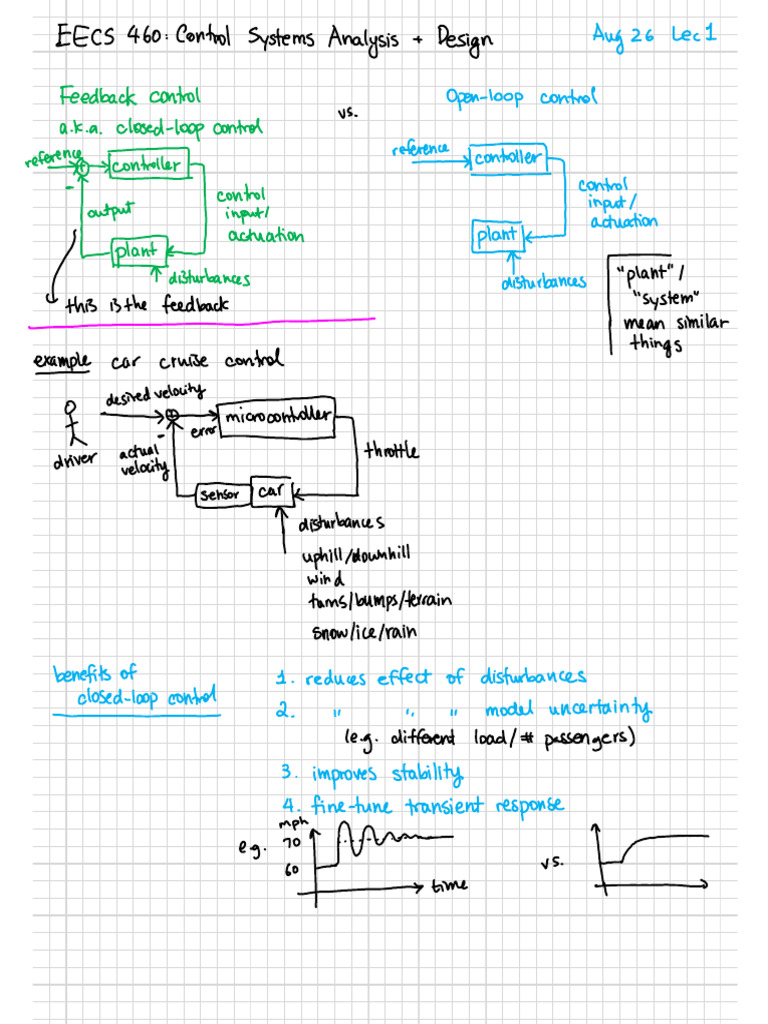 EECS 460: Control Systems Analysis + Design
Aug 26 Lec 1
Feedback control
a.k.a. closed-loop control
vs.
Open-loop control
reference
+
controller
-
output
control
input/
actuation
plant
disturbances
this is the feedback
reference
controller
control
input/
actuation
plant
disturbances
"plant"/
"system"
mean similar
things
example car cruise control
desired velocity
+
microcontroller
-
error
driver
actual
velocity
throttle
sensor
car
disturbances
uphill/downhill
wind
turns/bumps/terrain
snow/ice/rain
benefits of
closed-loop control
1. reduces effect of disturbances
2. " " " model uncertainty
(e.g. different load/# passengers)
3. improves stability
4. fine-tune transient response
e.g.
mph
70
60
time
vs.